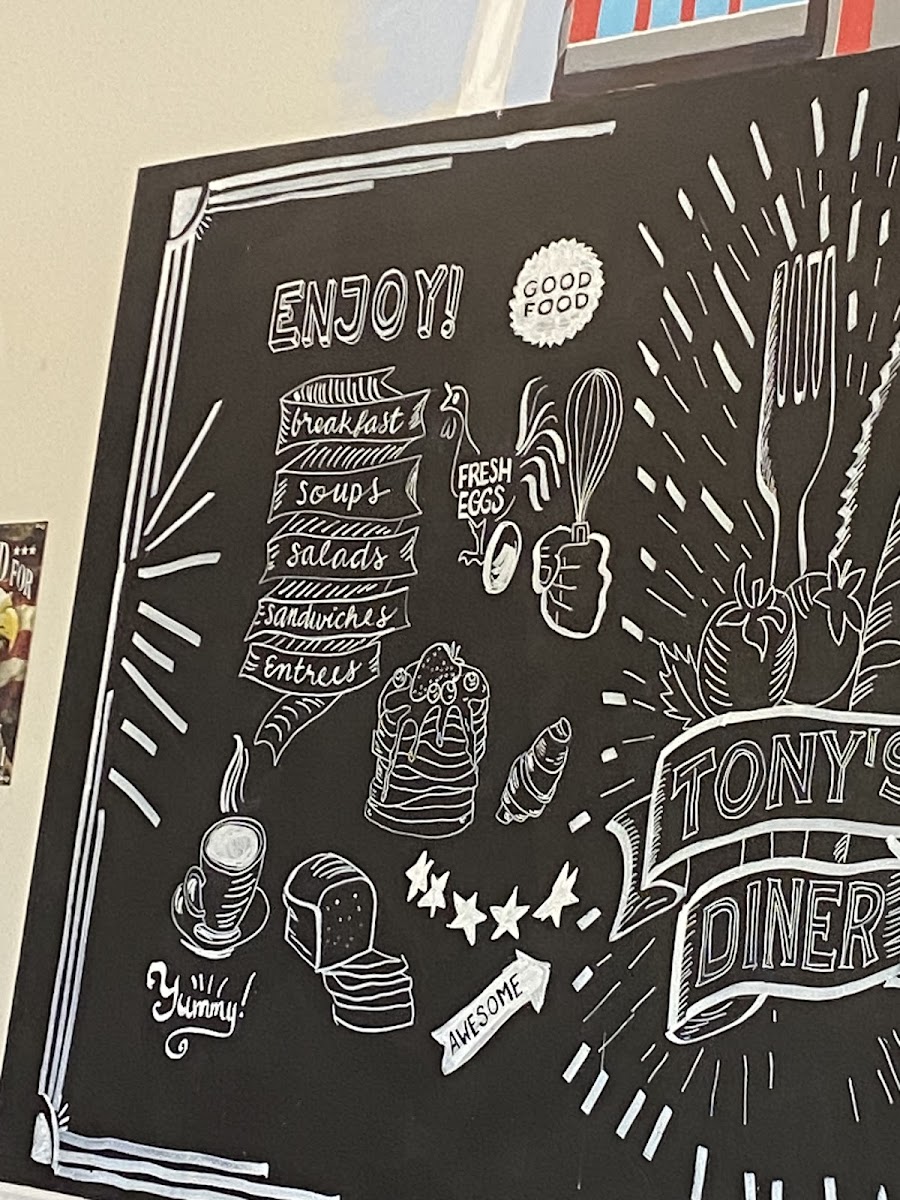 ENJOY!
GOOD
FOOD
breakfast
soups
salads
sandwiches
Entrees
FRESH
EGGS
TONY'S
DINER
Yummy!
AWESOME
FOR